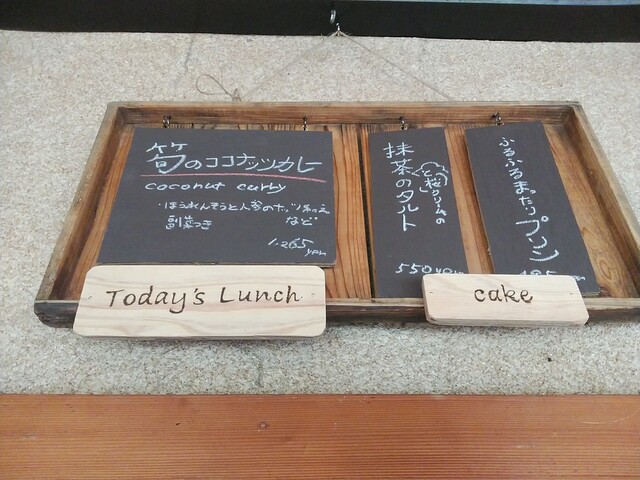 筍のココナッツカレー
coconut curry
・ほうれんそうと人参のナッツ和え
など
副菜つき
1.265
yen
抹茶のタルト
と桜クリームの
550 yen
ふるふるまったりプリン
495
Today's Lunch
cake